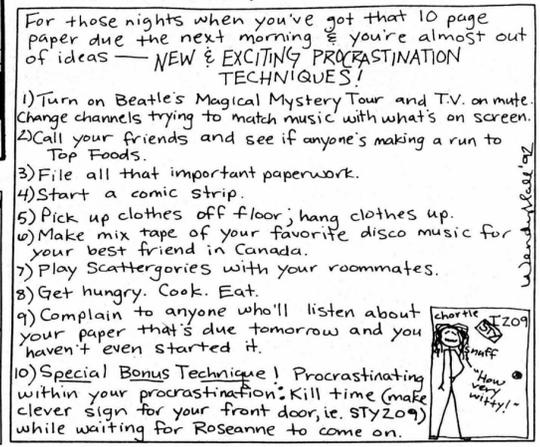 For those nights when you've got that 10 page
paper due the next morning & you're almost out
of ideas — NEW & EXCITING PROCRASTINATION
TECHNIQUES!
1) Turn on Beatle's Magical Mystery Tour and T.V. on mute.
Change channels trying to match music with what's on screen.
2) Call your friends and see if anyone's making a run to
Top Foods.
3) File all that important paperwork.
4) Start a comic strip.
5) Pick up clothes off floor; hang clothes up.
6) Make mix tape of your favorite disco music for
your best friend in Canada.
7) Play Scattergories with your roommates.
8) Get hungry. Cook. Eat.
9) Complain to anyone who'll listen about
your paper that's due tomorrow and you
haven't even started it.
10) Special Bonus Technique! Procrastinating
within your procrastination: Kill time (make
clever sign for your front door, ie. STYZ09)
while waiting for Roseanne to come on.
chortle
STY
Z09
snuff
"How
very
witty!"